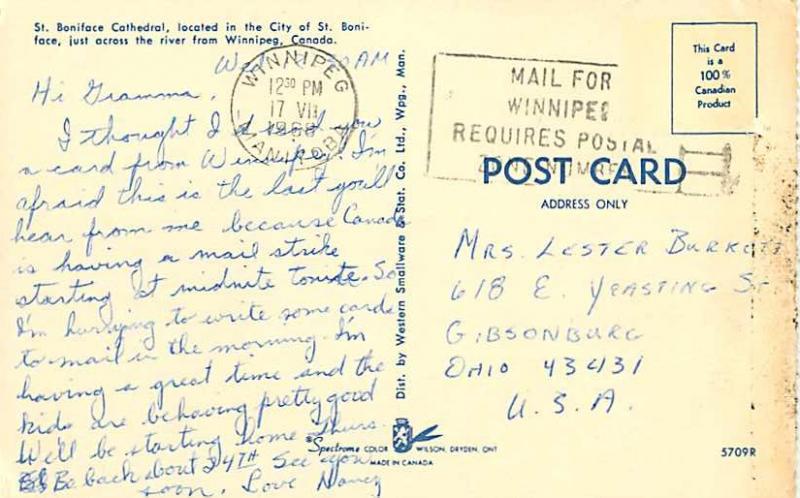 St. Boniface Cathedral, located in the City of St. Boni-
face, just across the river from Winnipeg, Canada.
AM
Hi Gramma,
I thought I'd send you
a card from Winnipeg. I'm
afraid this is the last you'll
hear from me because Canada
is having a mail strike
starting at midnite tonite. So
I'm hurrying to write some cards
to mail in the morning. I'm
having a great time and the
kids are behaving pretty good
We'll be starting home Thurs.
Be back about 24TH See you
soon, Love Nancy
WINNIPEG
12 30 PM
17 VII
1968
MANITOBA
Dist. by Western Smallware & Stat. Co. Ltd., Wpg., Man.
MAIL FOR
WINNIPEG
REQUIRES POSTAL
ZONE NUMBER
This Card
is a
100%
Canadian
Product
POST CARD
ADDRESS ONLY
MRS. LESTER BURKETT
618 E. YEASTING ST
GIBSONBURG
OHIO 43431
U.S.A.
Spectrome COLOR WILSON, DRYDEN, ONT
MADE IN CANADA
5709R